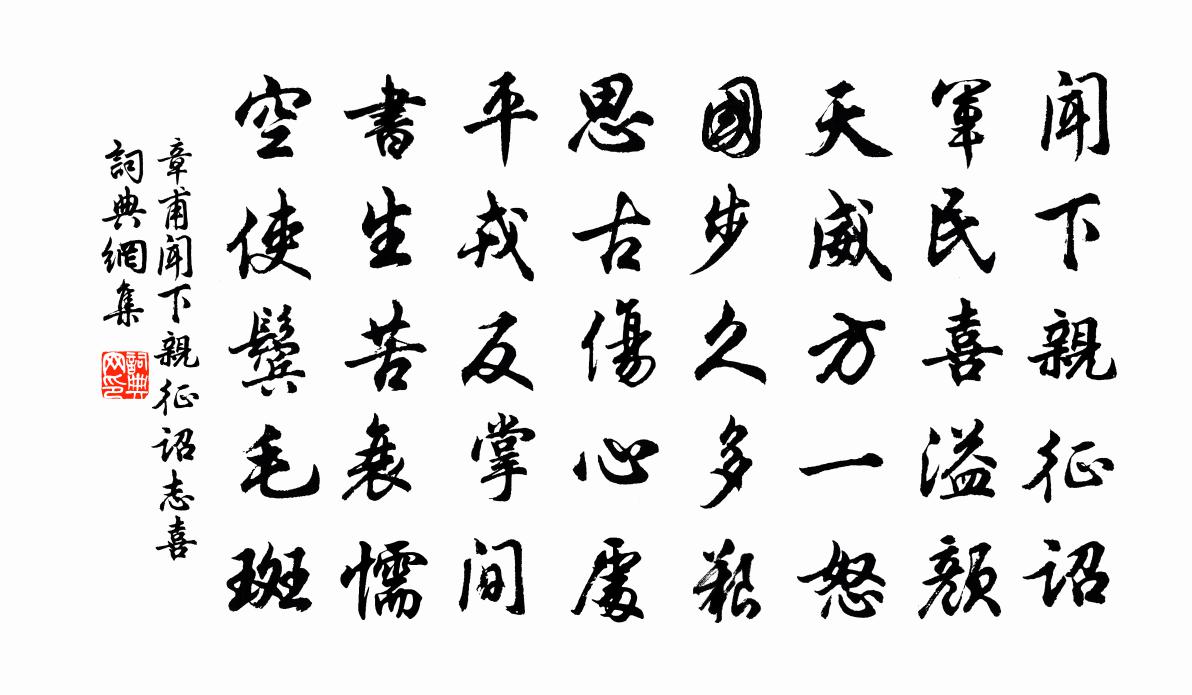 聞下親征詔
軍民喜溢顏
天威方一怒
國步久多艱
思古傷心處
平戎反掌間
書生苦衰懦
空使鬢毛斑
章甫聞下親征詔志喜
詞典網集
詞典网印